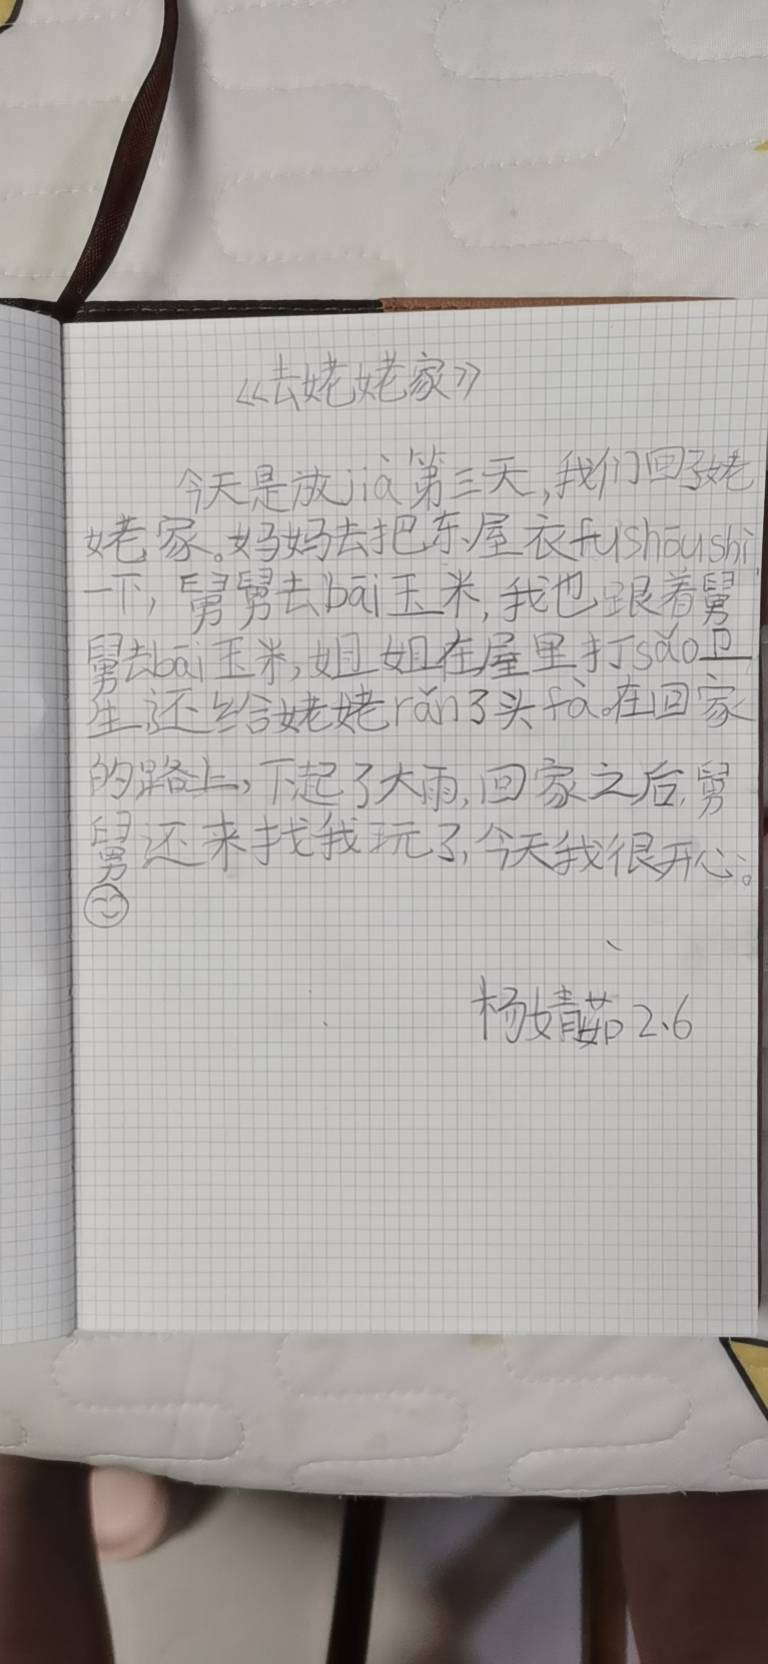 《去姥姥家》
今天是放jià第三天,我们回了姥
姥家。妈妈去把东屋衣fushōushi
一下,舅舅去bāi玉米,我也跟着舅
舅去bāi玉米,姐姐在屋里打sǎo卫
生,还给姥姥rǎn了头fà。在回家
的路上,下起了大雨,回家之后,舅
舅还来找我玩了,今天我很开心。
杨婧茹2.6